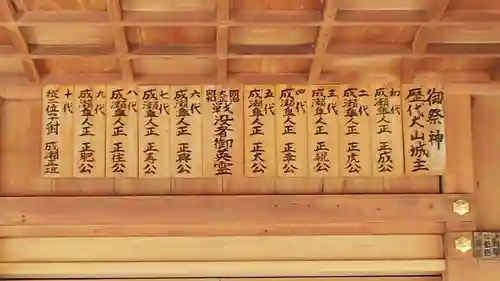 御祭神
歴代犬山城主
初代
成瀬隼人正 正成公
二代
成瀬隼人正 正虎公
三代
成瀬隼人正 正親公
四代
成瀬隼人正 正幸公
五代
成瀬隼人正 正太公
明治
大正
昭和
戦没者御英霊
六代
成瀬隼人正 正典公
七代
成瀬隼人正 正寿公
八代
成瀬隼人正 正住公
九代
成瀬隼人正 正肥公
十代
従二位子爵 成瀬正雄